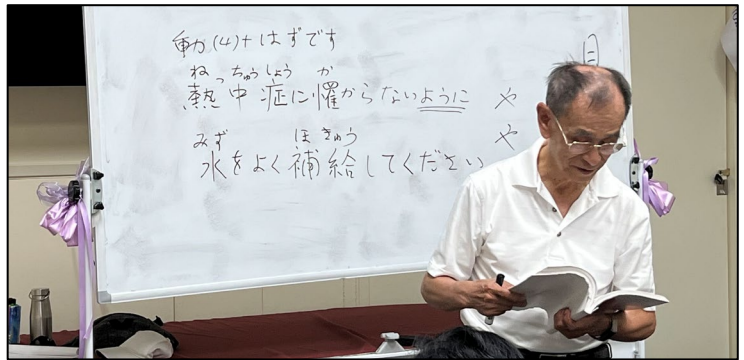 動(4)+はずです
ねっちゅうしょう か
熱中症に懼からないように や
みず ほきゅう や
水をよく補給してください